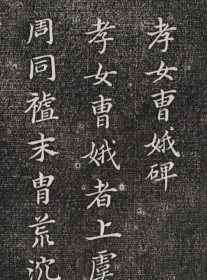 孝女曹娥碑
孝女曹娥者上虞
周同𥙿末胄荒沉